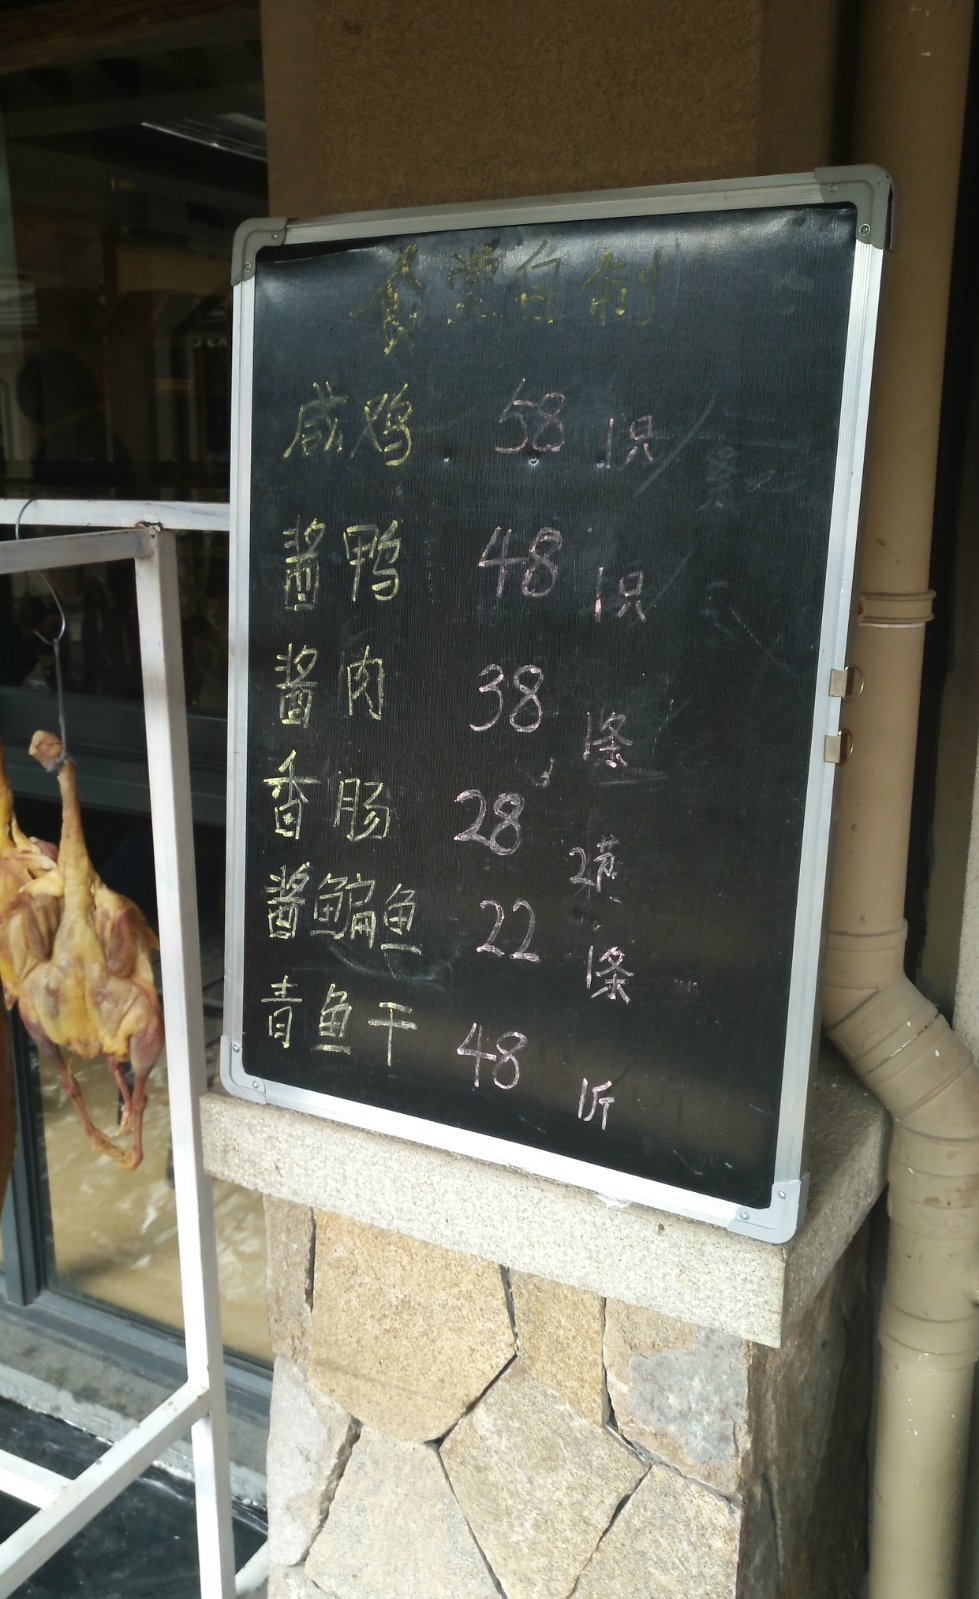 食堂自制
咸鸡 58 1只
酱鸭 48 1只
酱肉 38 1条
香肠 28 2节
酱鳊鱼 22 1条
青鱼干 48 1斤